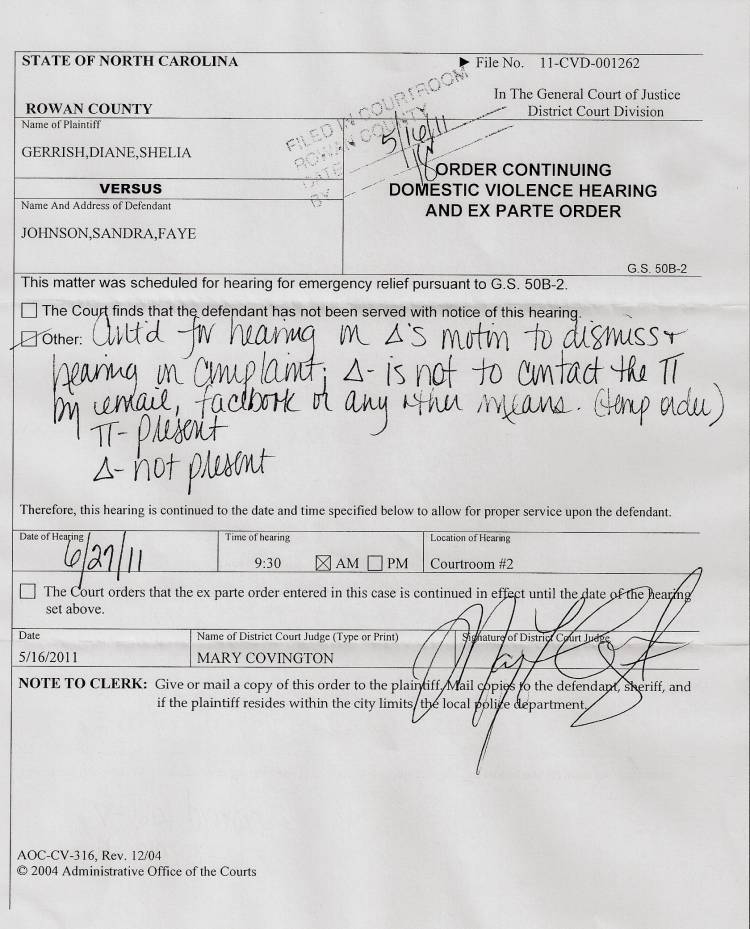 STATE OF NORTH CAROLINA
▶ File No. 11-CVD-001262
ROWAN COUNTY
In The General Court of Justice
District Court Division
FILED IN COURTROOM
ROWAN COUNTY
DATE 5/16/11
BY
Name of Plaintiff
GERRISH,DIANE,SHELIA
VERSUS
Name And Address of Defendant
JOHNSON,SANDRA,FAYE
ORDER CONTINUING
DOMESTIC VIOLENCE HEARING
AND EX PARTE ORDER
G.S. 50B-2
This matter was scheduled for hearing for emergency relief pursuant to G.S. 50B-2.
☐ The Court finds that the defendant has not been served with notice of this hearing.
☑ Other: Cont'd for hearing on Δ's motion to dismiss +
hearing on complaint; Δ- is not to contact the Π
by email, facebook or any other means. (temp order)
Π- present
Δ- not present
Therefore, this hearing is continued to the date and time specified below to allow for proper service upon the defendant.
Date of Hearing
6/27/11
Time of hearing
9:30 ☒ AM ☐ PM
Location of Hearing
Courtroom #2
☐ The Court orders that the ex parte order entered in this case is continued in effect until the date of the hearing
set above.
Date
5/16/2011
Name of District Court Judge (Type or Print)
MARY COVINGTON
Signature of District Court Judge
NOTE TO CLERK: Give or mail a copy of this order to the plaintiff. Mail copies to the defendant, sheriff, and
if the plaintiff resides within the city limits, the local police department.
AOC-CV-316, Rev. 12/04
© 2004 Administrative Office of the Courts